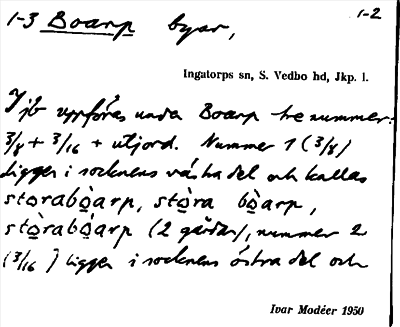 1-3 Boarp byar,
1-2
Ingatorps sn, S. Vedbo hd, Jkp. l.
I jb uppföres under Boarp tre nummer:
3/8 + 3/16 + utjord. Nummer 1 (3/8)
ligger i socknens västra del och kallas
storabòarp, stòra bòarp,
stòrabòarp (2 gårdar), nummer 2
(3/16) ligger i socknens östra del och
Ivar Modéer 1950